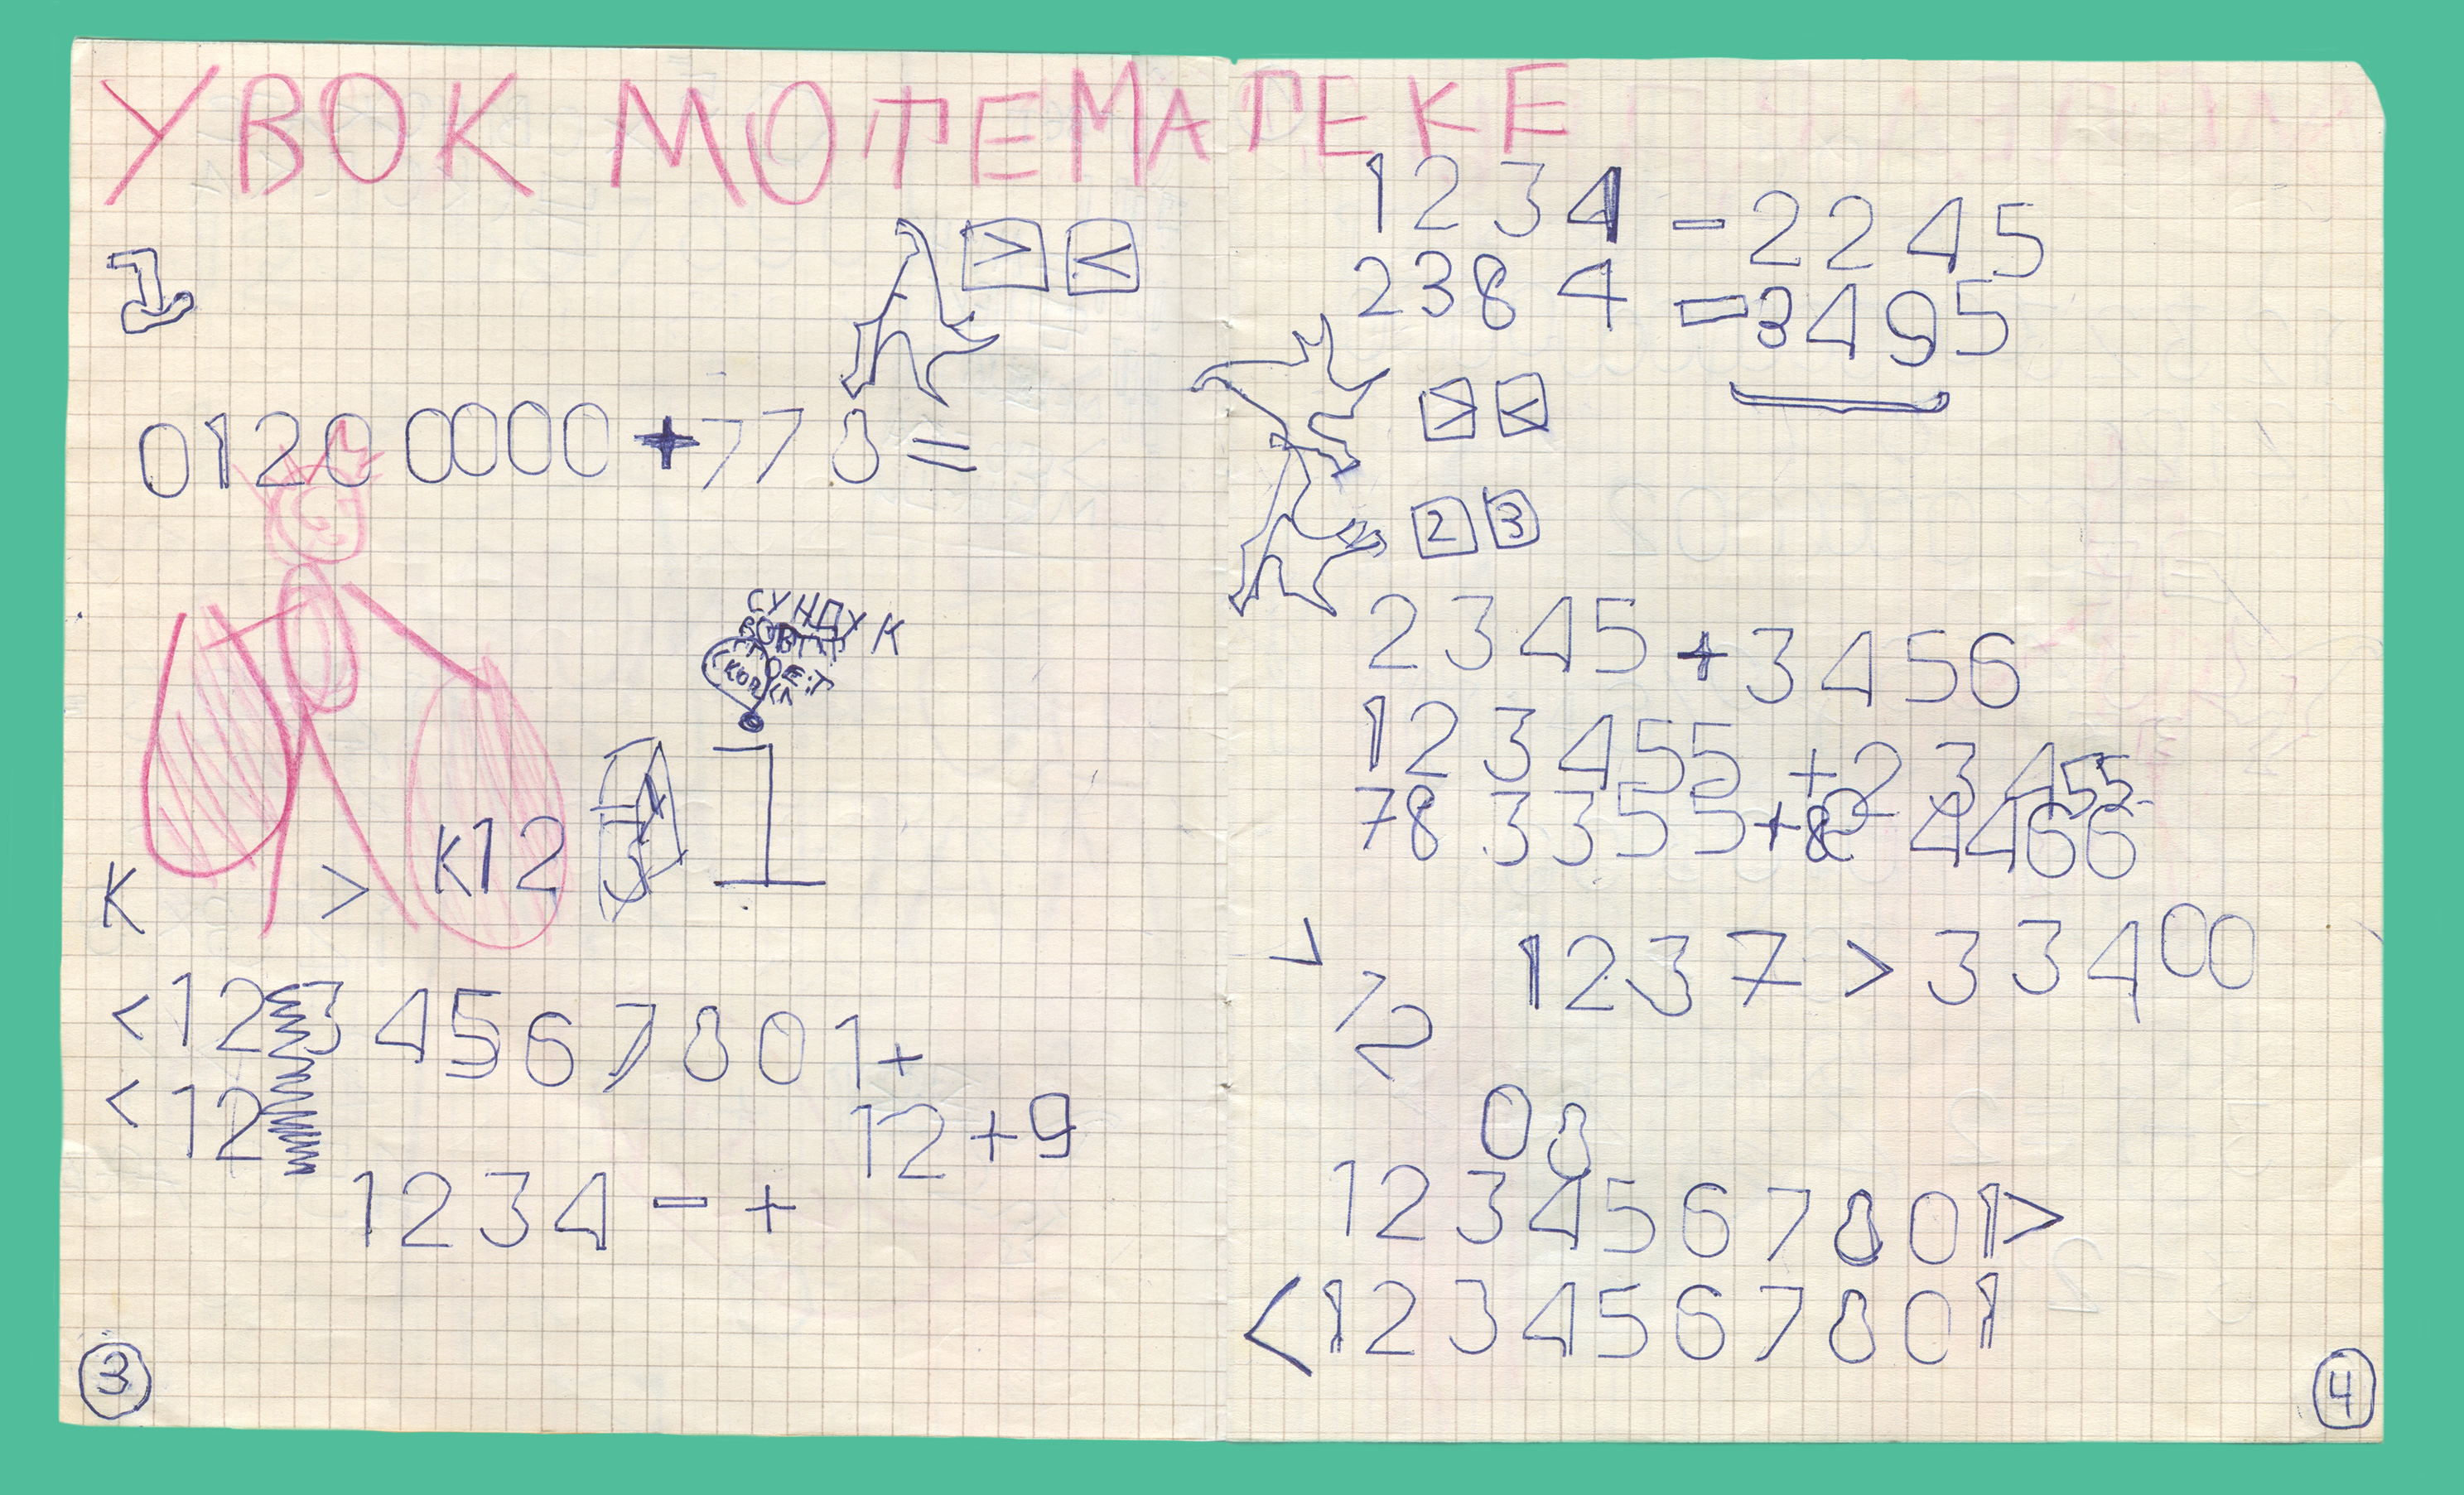 УВОК МОТЕМАТЕКЕ
1
> <
01200000+778=
СУНДУК
К > К12
1
<123456780 1+
<12
12+9
1234 - +
3
1234 -2245
2384 -3495
> <
2 3
2345+3456
123455+23455
783355+824466
1237>33400
72
08
1234567801>
<1234567801
4